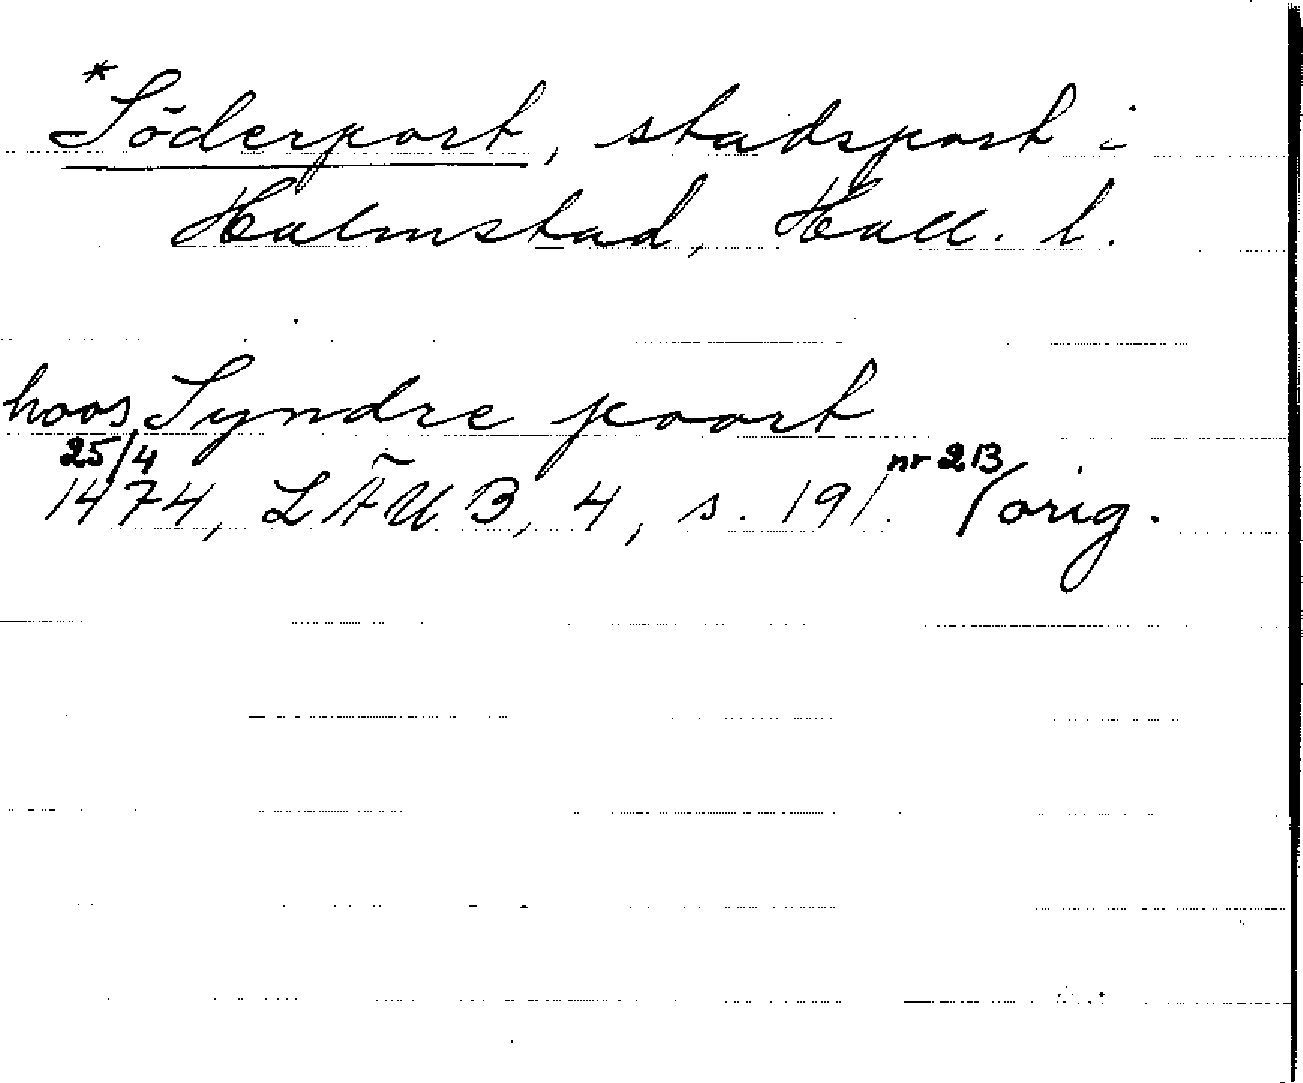 *Söderport, stadsport i
Halmstad, Hall. l.
hoos Syndre poort
25/4
1474, LÄUB, 4, s. 191. nr 213 /orig.